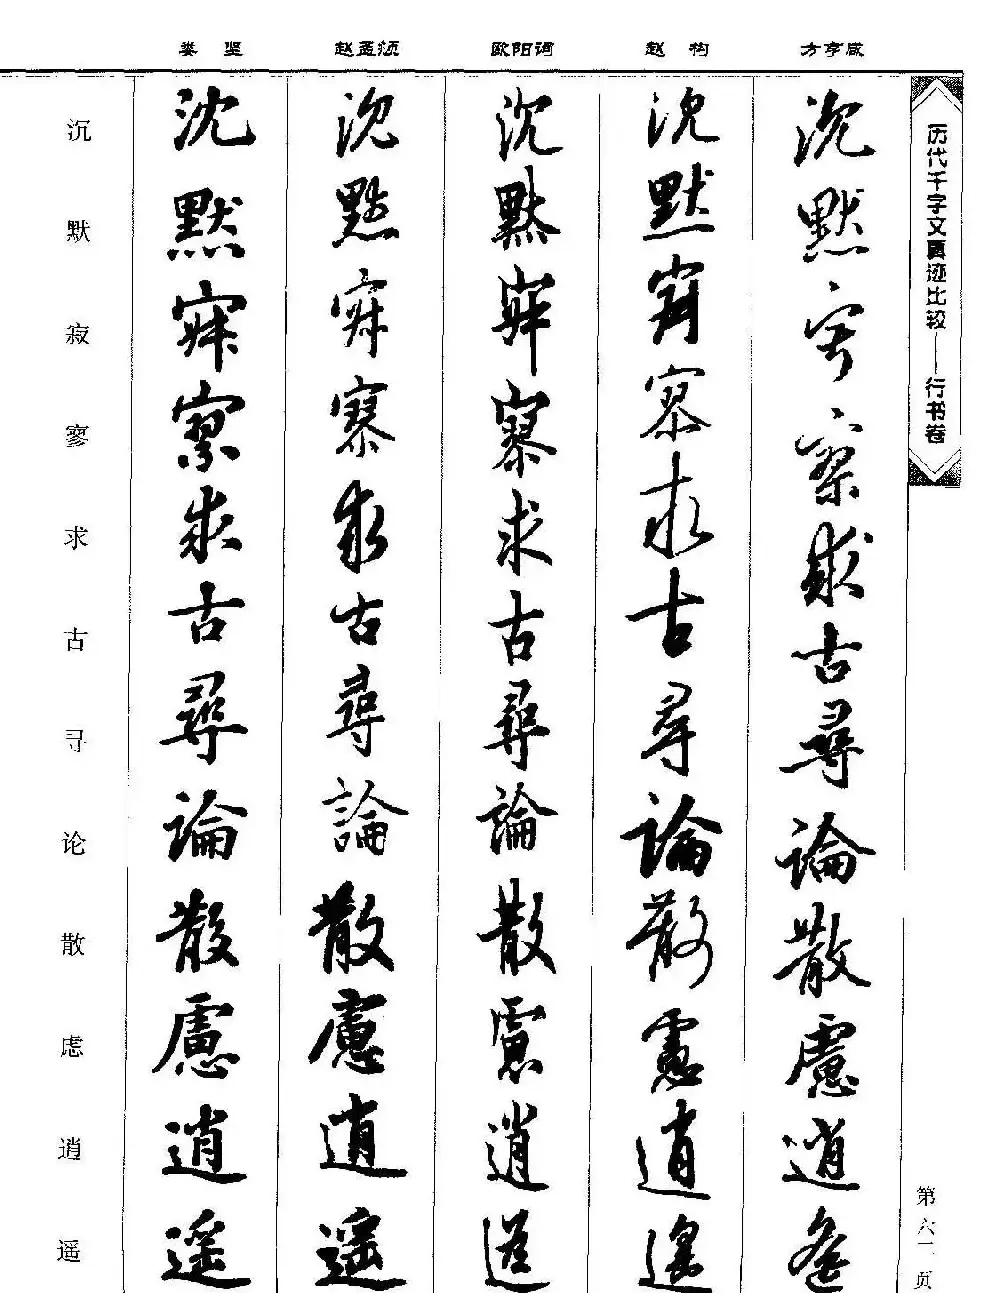 娄坚 赵孟頫 欧阳询 赵构 方亨咸
历代千字文真迹比较——行书卷
沉 沈 沉 沉 沉 沉
默 默 默 默 默 默
寂 寂 寂 寂 寂 寂
寥 寥 寥 寥 寥 寥
求 求 求 求 求 求
古 古 古 古 古 古
寻 尋 尋 尋 尋 尋
论 論 論 論 論 論
散 散 散 散 散 散
虑 慮 慮 慮 慮 慮
逍 逍 逍 逍 逍 逍
遥 遥 遥 遥 遥 遥
第六一页